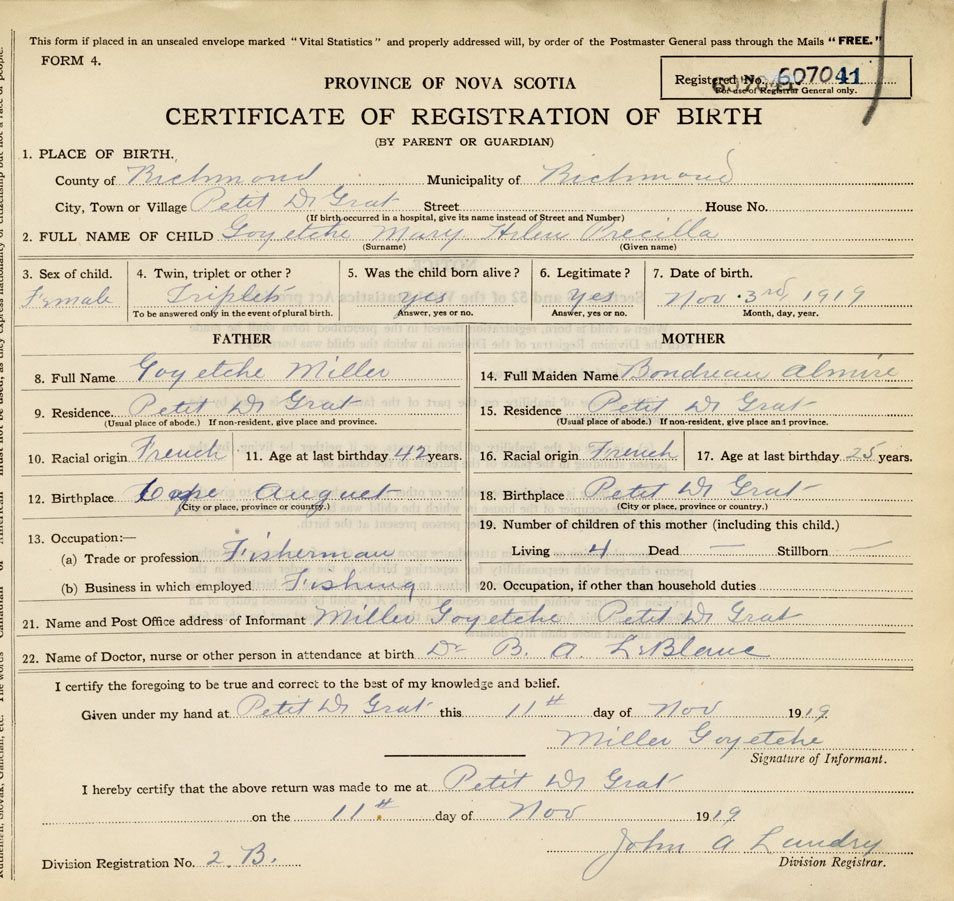 This form if placed in an unsealed envelope marked "Vital Statistics" and properly addressed will, by order of the Postmaster General pass through the Mails "FREE."
FORM 4.
Registered No. 607041
For use of Registrar General only.
PROVINCE OF NOVA SCOTIA
CERTIFICATE OF REGISTRATION OF BIRTH
(BY PARENT OR GUARDIAN)
1. PLACE OF BIRTH.
County of Richmond Municipality of Richmond
City, Town or Village Petit De Grat Street House No.
(If birth occurred in a hospital, give its name instead of Street and Number)
2. FULL NAME OF CHILD Goyetche Mary Helen Precilla
(Surname) (Given name)
3. Sex of child. 4. Twin, triplet or other? 5. Was the child born alive? 6. Legitimate? 7. Date of birth.
Female Triplets yes Yes Nov. 3rd, 1919
To be answered only in the event of plural birth. Answer, yes or no. Answer, yes or no. Month, day, year.
FATHER MOTHER
8. Full Name Goyetche Miller 14. Full Maiden Name Boudreau Almire
9. Residence. Petit De Grat 15. Residence Petit De Grat
(Usual place of abode.) If non-resident, give place and province. (Usual place of abode.) If non-resident, give place and province.
10. Racial origin French 11. Age at last birthday 42 years. 16. Racial origin French 17. Age at last birthday 25 years.
12. Birthplace Cape August 18. Birthplace Petit De Grat
(City or place, province or country.) (City or place, province or country.)
13. Occupation:— 19. Number of children of this mother (including this child.)
(a) Trade or profession Fisherman Living 4 Dead — Stillborn —
(b) Business in which employed Fishing 20. Occupation, if other than household duties
21. Name and Post Office address of Informant Miller Goyetche Petit De Grat
22. Name of Doctor, nurse or other person in attendance at birth Dr B. A. LeBlanc
I certify the foregoing to be true and correct to the best of my knowledge and belief.
Given under my hand at Petit De Grat this 11th day of Nov 1919
Miller Goyetche
Signature of Informant.
I hereby certify that the above return was made to me at Petit De Grat
on the 11th day of Nov 1919
John A Landry
Division Registration No. 2 B. Division Registrar.